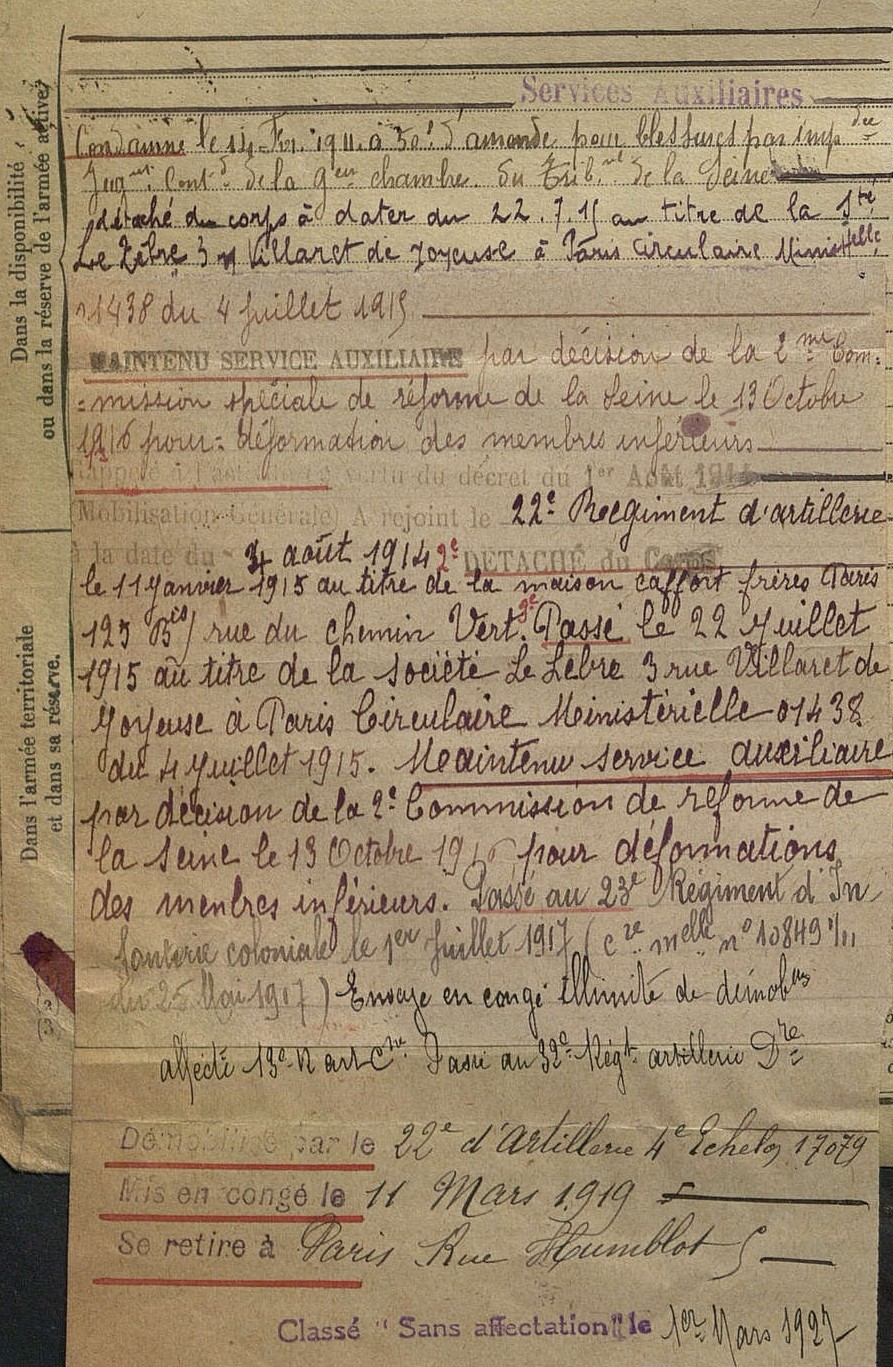 Dans la disponibilité
ou dans la réserve de l'armée active
Services Auxiliaires
Condamné le 14 Fer. 1911 à 50f d'amende pour blessures par impdce
Jugnt Contd de la 9em chambre du Tribnl de la Seine
détaché du corps à dater du 22.7.15 au titre de la Sté
Le Zèbre 3 r Villaret de Joyeuse à Paris Circulaire Ministielle
01438 du 4 Juillet 1915
MAINTENU SERVICE AUXILIAIRE par décision de la 2me Com-
=mission spéciale de réforme de la Seine le 13 Octobre
1916 pour = déformation des membres inférieurs
Rappelé à l'act en vertu du décret du 1er Août 1914
(Mobilisation Générale) A rejoint le 22e Régiment d'artillerie
à la date du 4 août 1914 2e DÉTACHÉ du Corps
le 11 Janvier 1915 au titre de la maison Caffort frères Paris
125 Bis) rue du chemin Vert. 3e Passé le 22 Juillet
1915 au titre de la société Le Lèbre 3 rue Villaret de
Joyeuse à Paris Circulaire Ministérielle 01438
du 4 Juillet 1915. Maintenu service auxiliaire
par décision de la 2e Commission de réforme de
la Seine le 13 Octobre 1916 pour déformations
des menbres inférieurs. Passé au 23e Régiment d'In
fanterie coloniale le 1er Juillet 1917 (cre melle no 10849
du 25 Mai 1917) Envoyé en congé illimité de démobon
affecté 13e R art Cne Passé au 32e Régt artillerie Dre
Dans l'armée territoriale
et dans sa réserve.
Démobilisé par le 22e d'Artillerie 4e Echelon 17079
Mis en congé le 11 Mars 1919
Se retire à Paris Rue Humblot 5
Classé "Sans affectation" le 1er Mars 1927